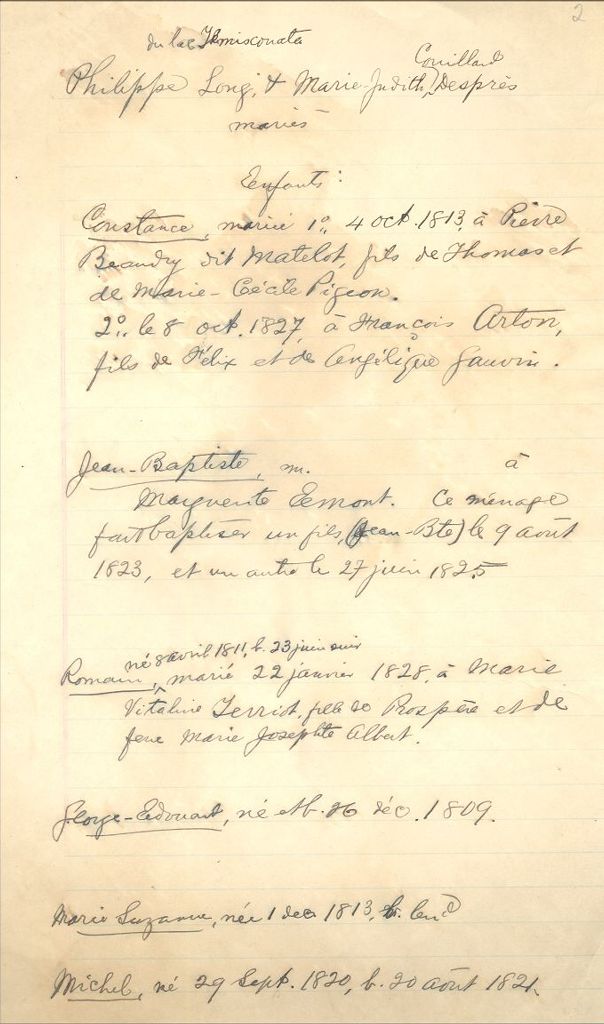 2
du lac Témisconata
Couillard
Philippe Long, & Marie-Judith, Desprès
mariés
Enfants :
Constance, mariée 1°, 4 oct. 1813, à Pierre
Beaudry dit Matelot, fils de Thomas et
de Marie-Cécile Pigeon.
2°, le 8 oct. 1827, à François Arton,
fils de Félix et de Angélique Gauvin.
Jean-Baptiste, m. à
Marguerite Emont. Ce ménage
fait baptiser un fils, (Jean-Bte) le 9 août
1823, et un autre le 27 juin 1825
né 8 avril 1811, b. 23 juin suiv
Romain, marié 22 janvier 1828, à Marie
Vitaline Terriot, fille de Prospère et de
feue Marie Josephte Albert.
George-Edouard, né et b. 26 déc. 1809.
Marie Suzanne, née 1 dec 1813, b. lend
Michel, né 29 Sept. 1820, b. 20 août 1821.